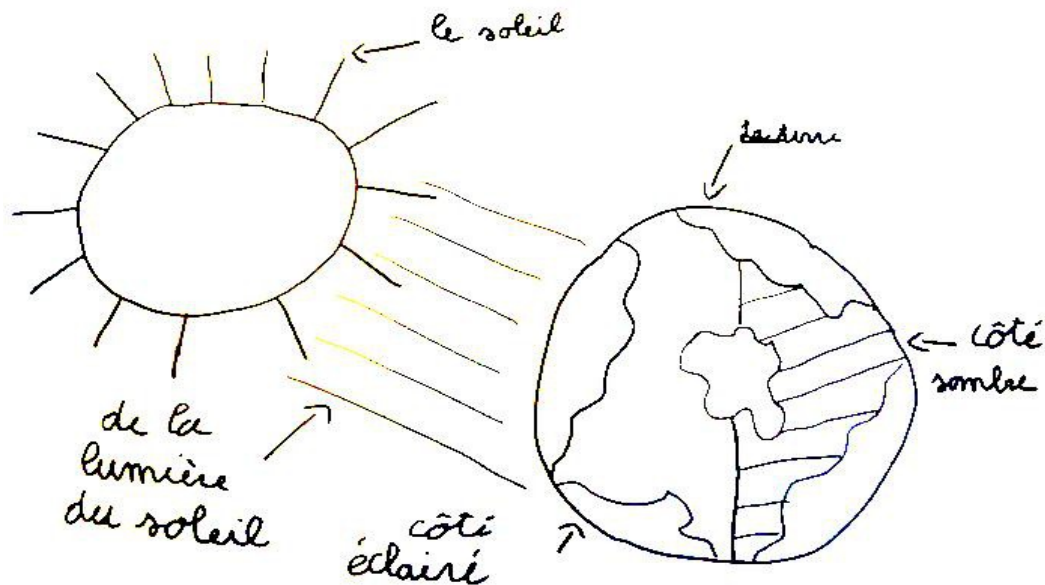 le soleil
La terre
côté
sombre
de la
lumière
du soleil
côté
éclairé